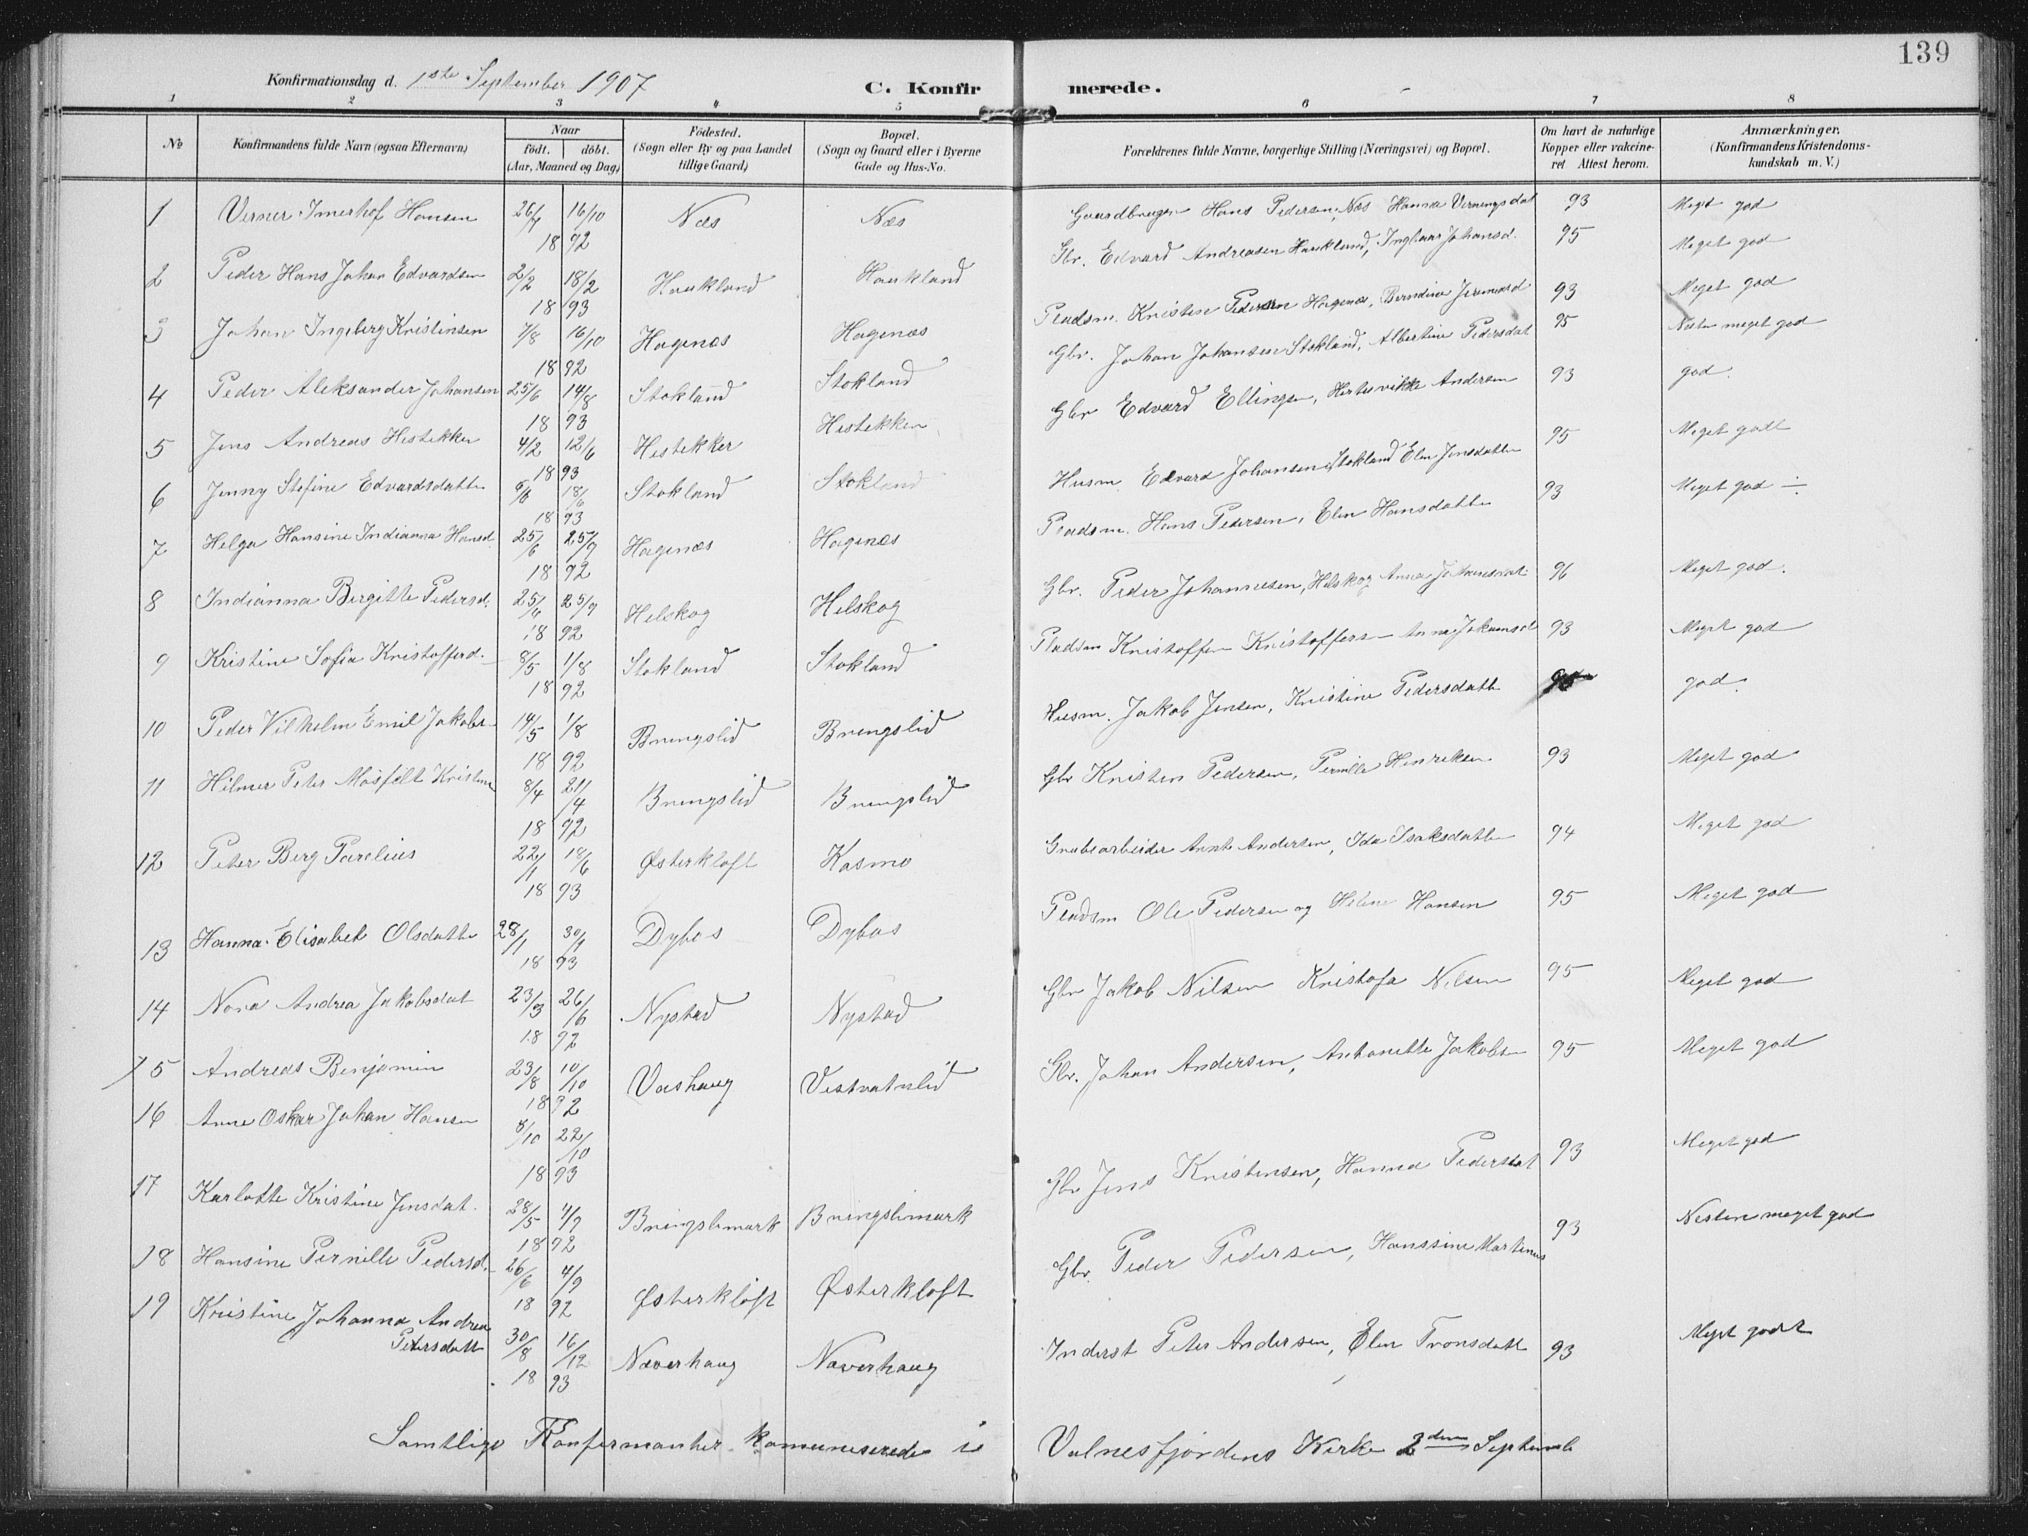 139
Konfirmationsdag d. 1ste September 1907 C. Konfirmerede.
1 2 3 4 5 6 7 8
No Konfirmandens fulde Navn (ogsaa Efternavn) Naar født. døbt. (Aar, Maaned og Dag) Fødested. (Sogn eller By og paa Landet tillige Gaard) Bopæl. (Sogn og Gaard eller i Byerne Gade og Hus-No. Forældrenes fulde Navne, borgerlige Stilling (Næringsvei) og Bopæl. Om havt de naturlige Kopper eller vakcineret Attest herom. Anmærkninger. (Konfirmandens Kristendomskundskab m. V.)
1 Verner Imerhof Hansen 26/9 16/10 1892 Næs Næs Gaardbruger Hans Pedersen, Næs Hanna Verningsdat 93 Meget god
2 Peder Hans Johan Edvardsen 2/2 18/2 1893 Haukland Haukland Gbr. Edvard Andreasen Haukland, Ingbaar Johansd. 95 Meget god
3 Johan Ingeberg Kristinsen 7/8 16/10 1892 Hagenæs Hagenæs Pladsm. Kristen Pedersen Hagenæs, Berndine 93 Meget god
4 Peder Aleksander Johansen 25/6 14/8 1893 Stokland Stokland Gbr. Johan Johansen Stokland, Albertine Pedersdat 95 Nesten meget god
5 Jens Andreas Hestekker 4/2 12/6 1893 Hestekker Hestekken Gbr Edvard Ellingsen, Andersen 93 god.
6 Jenny Stefine Edvardsdatter 18/6 1893 Stokland Stokland Husm. Edvard Johansen Stokland Elen Jensdatter 95 Meget godt
7 Helga Hansine Indianna Hansd. 25/6 25/9 1892 Hagenæs Hagenæs Pladsm. Hans Pedersen, Elen Hansdatter 93 Meget god ÷
8 Indianna Birgitte Pedersd. 25/9 1892 Helskog Helskog Gbr. Peder Johannesen, Helskog Anna Johannesdat. 96 Meget god.
9 Kristine Sofia Kristofferd. 8/5 1/8 1892 Stokland Stokland Pladsm Kristoffer Kristoffers- Anne 93 Meget god
10 Peder Vilhelm Emil Jakobs- 14/5 1/8 1892 Bringslid Bringslid Husm. Jakob Jensen, Kristine Pedersdatter god.
11 Hilmer Peter Mosfelt Kristens 8/4 21/4 1892 Bringslid Bringslid Gbr Kristen Pedersen, Pernille Henriksen 93 Meget god
12 Peter Berg Parelius 22/1 18/6 1893 Østerkløft Kosmo Grubearbeider Arnt Andersen, Ida Isaksdatter 94 Meget god
13 Hanna Elisabet Olsdatter 28/1 1893 Dybos Dybos Pladsm Ole Pedersen og Helene Hansen 95 Meget god
14 Nora Andrea Jakobsdat 23/3 26/6 1892 Nystad Nystad Gbr Jakob Nilsen Kristofa Nilsen 95 Meget god
15 Andreas Benjamin 23/8 10/10 1892 Vashaug Vestvatnlid Gbr. Johan Andersen, Antonette Jakobs- 95 Meget god
16 Arne Oskar Johan Hansen 8/10 22/10 1893
17 Karlotte Kristine Jensdat. 28/5 4/9 1892 Bringslimark Bringslimark Gbr Jens Kristensen, Hanna Pedersdat 93 Meget god
18 Hansine Pernille Pedersd. 26/6 4/9 1892 Østerkløft Østerkløft Gbr. Peder Pedersen, Hanssine Martinus 93 Nesten meget god
19 Kristine Johanna Andrea
Petersdatt 30/8 16/12 1893 Næverhaug Næverhaug Inderst Peter Andersen, Elen Tronsdatt 93 Meget godt
Samtlige Konfirmanter komuniserede i Valnesfjordens Kirke 2den Septemb